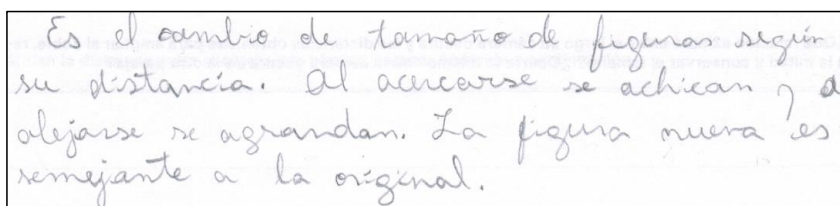 Es el cambio de tamaño de figuras según
su distancia. Al acercarse se achican y a
alejarse se agrandan. La figura nueva es
semejante a la original.